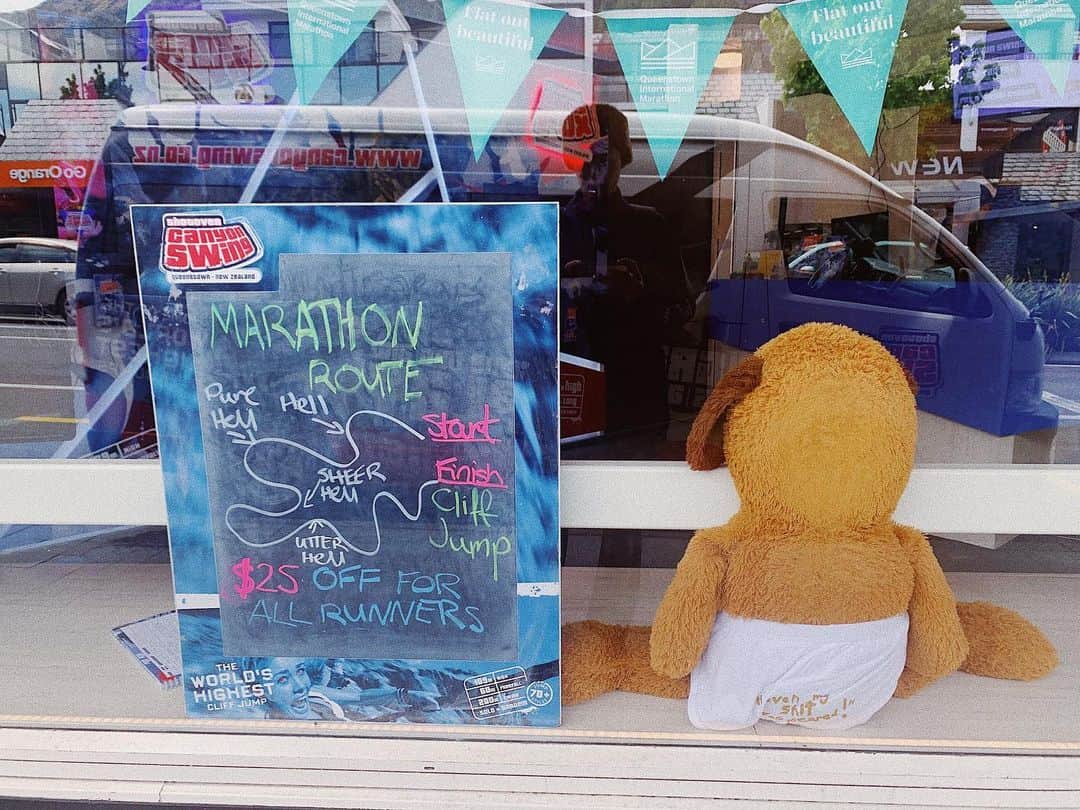 Queenstown
International
Marathon
Flat out
beautiful
Queenstown
International
Marathon
Flat out
beautiful
www.canyonswing.co.nz
Go Orange
NEW
shotover
canyon
swing
QUEENSTOWN - NEW ZEALAND
MARATHON
ROUTE
Pure
Hell
Hell
Start
SHEER
Hell
Finish
Cliff
Jump
UTTER
Hell
$25 OFF FOR
ALL RUNNERS
THE
WORLD'S
HIGHEST
CLIFF JUMP
109m
60m
200m
70+
my
shit